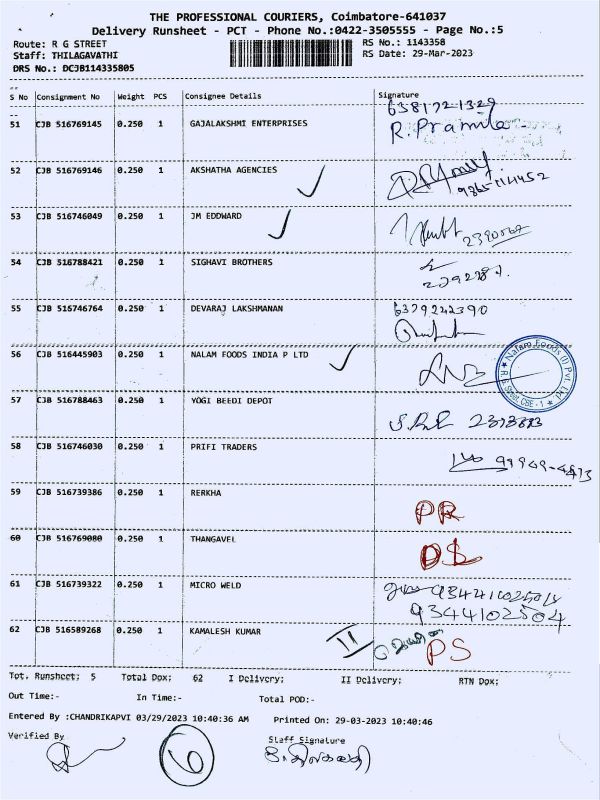 THE PROFESSIONAL COURIERS, Coimbatore-641037
Delivery Runsheet - PCT - Phone No.:0422-3505555 - Page No.:5
Route: R G STREET RS No.: 1143358
Staff: THILAGAVATHI RS Date: 29-Mar-2023
DRS No.: DCJB114335805
S No Consignment No Weight PCS Consignee Details Signature
6381721329
51 CJB 516769145 0.250 1 GAJALAKSHMI ENTERPRISES R. Pramila
52 CJB 516769146 0.250 1 AKSHATHA AGENCIES
53 CJB 516746049 0.250 1 JM EDDWARD
54 CJB 516788421 0.250 1 SIGHAVI BROTHERS
55 CJB 516746764 0.250 1 DEVARAJ LAKSHMANAN 6379242390
56 CJB 516445903 0.250 1 NALAM FOODS INDIA P LTD Nalam Foods (I) Pvt. Ltd. ★ R.G. Street, CBE - 1 ★
57 CJB 516788463 0.250 1 YOGI BEEDI DEPOT
58 CJB 516746030 0.250 1 PRIFI TRADERS
59 CJB 516739386 0.250 1 RERKHA PR
60 CJB 516769080 0.250 1 THANGAVEL DS
61 CJB 516739322 0.250 1 MICRO WELD
9344102504
62 CJB 516589268 0.250 1 KAMALESH KUMAR 11 PS
Tot. Runsheet; 5 Total Dox; 62 I Delivery; II Delivery; RTN Dox;
Out Time:- In Time:- Total POD:-
Entered By :CHANDRIKAPVI 03/29/2023 10:40:36 AM Printed On: 29-03-2023 10:40:46
Verified By Staff Signature
6